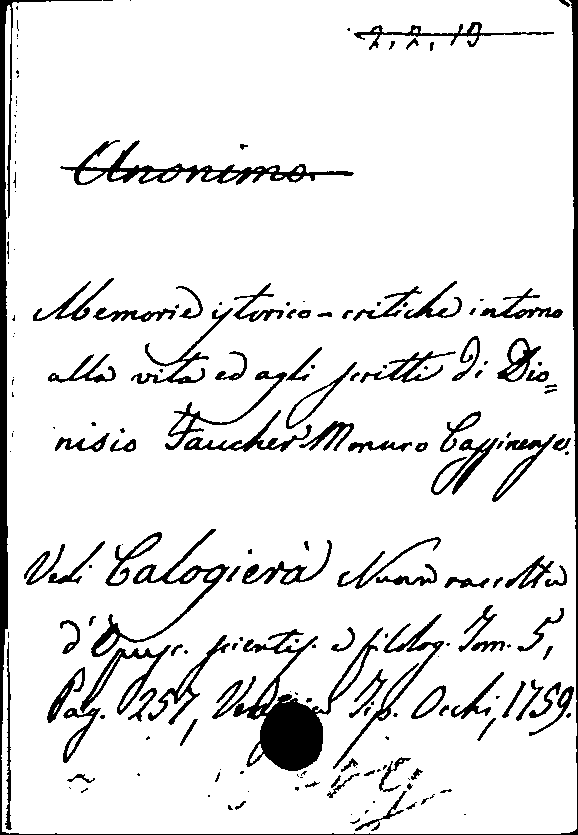 2. 2. 19
Anonimo.
Memorie istorico-critiche intorno
alla vita ed agli scritti di Dio=
nisio Faucher Monaco Cassinense.
Vedi Calogierà Nuova raccolta
d'Opusc. scientif. e filolog. Tom. 5,
Pag. 257, Venezia Tip. Occhi, 1759.